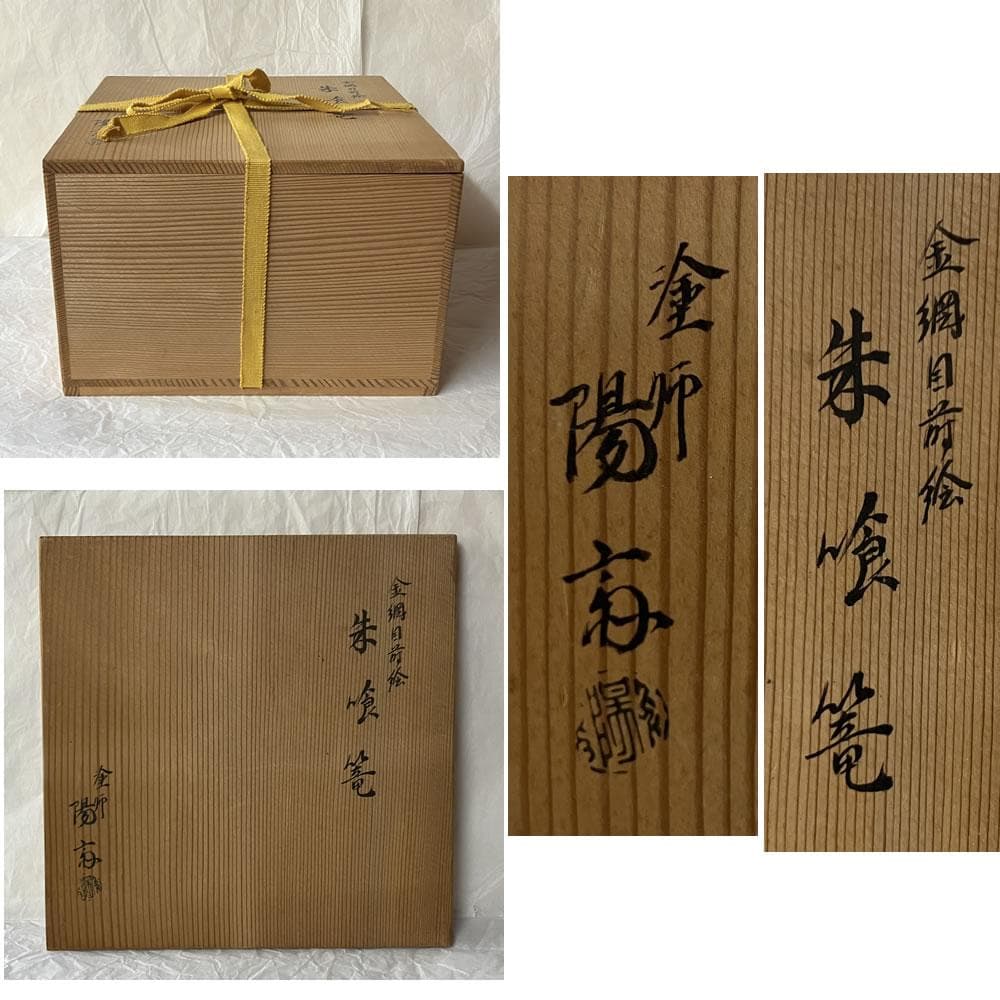 金網目蒔絵
朱喰篭
塗師
陽斎
塗師
陽斎
金網目蒔絵
朱喰篭